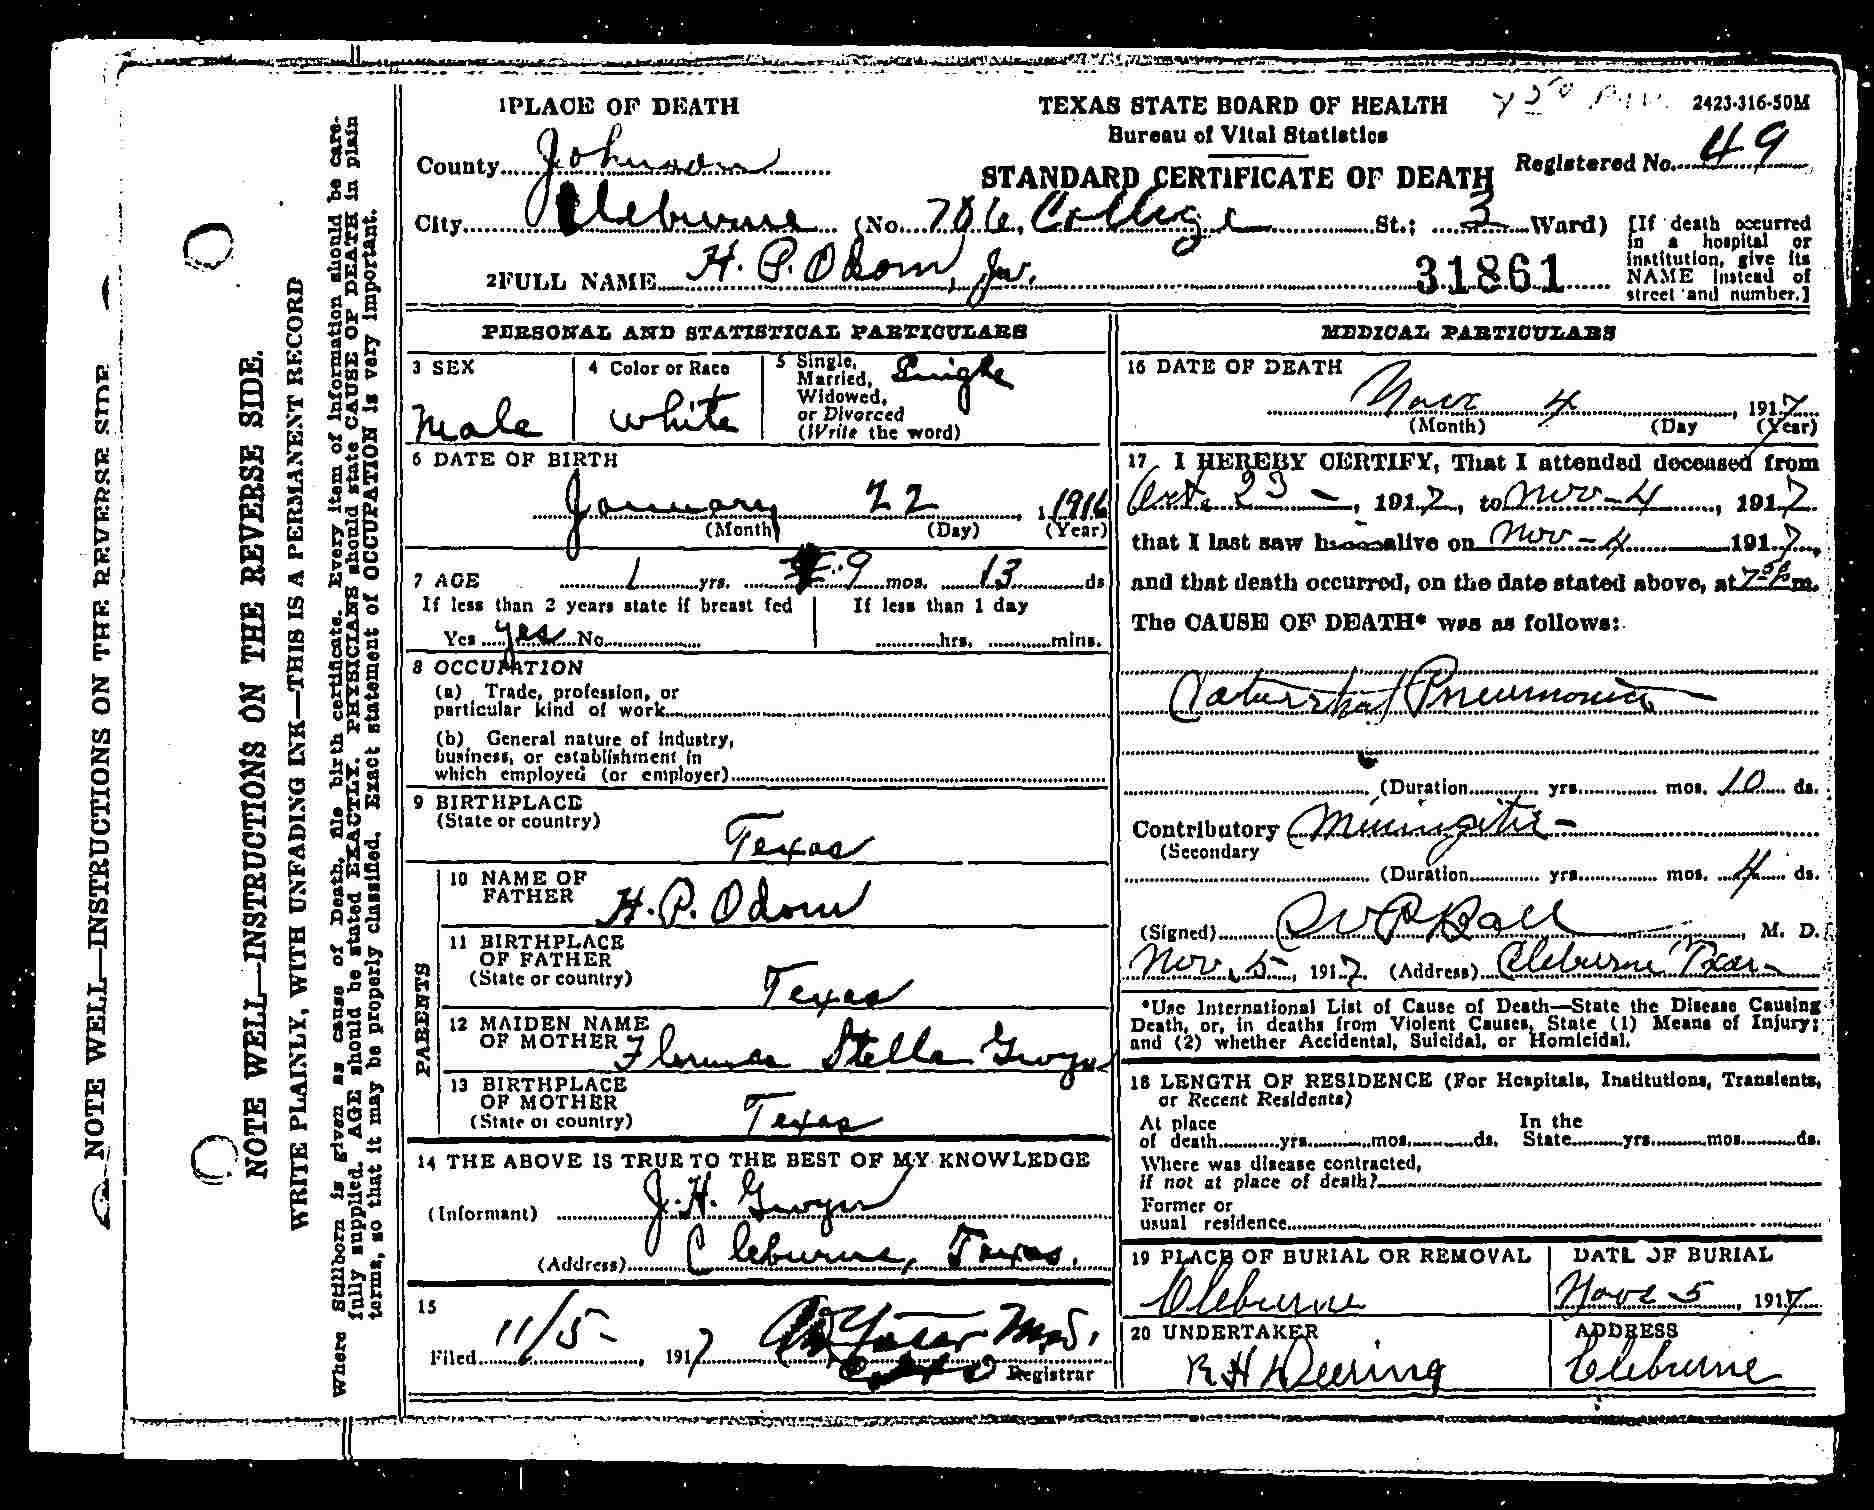 1 PLACE OF DEATH
County Johnson
City Cleburne (No. 706, College St.; 3 Ward)
2 FULL NAME H. P. Odom, Jr.
TEXAS STATE BOARD OF HEALTH
Bureau of Vital Statistics
STANDARD CERTIFICATE OF DEATH
2423-316-50M
Registered No. 49
31861
[If death occurred
in a hospital or
institution, give its
NAME instead of
street and number.]
PERSONAL AND STATISTICAL PARTICULARS
3 SEX
Male
4 Color or Race
White
5 Single, Single
Married,
Widowed,
or Divorced
(Write the word)
6 DATE OF BIRTH
January 22, 1916
(Month) (Day) (Year)
7 AGE 1 yrs. 9 mos. 13 ds
If less than 2 years state if breast fed
Yes yes No
If less than 1 day
hrs. mins.
8 OCCUPATION
(a) Trade, profession, or
particular kind of work
(b) General nature of industry,
business, or establishment in
which employed (or employer)
9 BIRTHPLACE
(State or country)
Texas
PARENTS
10 NAME OF
FATHER H. P. Odom
11 BIRTHPLACE
OF FATHER
(State or country) Texas
12 MAIDEN NAME
OF MOTHER Florence Stella Gwyn
13 BIRTHPLACE
OF MOTHER
(State or country) Texas
14 THE ABOVE IS TRUE TO THE BEST OF MY KNOWLEDGE
(Informant) J. H. Gwyn
(Address) Cleburne, Texas.
15
Filed 11/5-, 1917 Yater M.D.
Registrar
MEDICAL PARTICULARS
16 DATE OF DEATH
Nov 4, 1917
(Month) (Day (Year)
17 I HEREBY CERTIFY, That I attended deceased from
Oct. 23-, 1917, to Nov-4, 1917
that I last saw h alive on Nov-4 1917,
and that death occurred, on the date stated above, at m.
The CAUSE OF DEATH* was as follows:
Catarrhal Pneumonia
(Duration yrs. mos. 10 ds.
Contributory Miningitis-
(Secondary
(Duration yrs. mos. 4 ds.
(Signed) Ball, M. D.
Nov. 5-, 1917 (Address) Cleburne Texas
*Use International List of Cause of Death—State the Disease Causing
Death, or, in deaths from Violent Causes, State (1) Means of Injury;
and (2) whether Accidental, Suicidal, or Homicidal.
18 LENGTH OF RESIDENCE (For Hospitals, Institutions, Transients,
or Recent Residents)
At place In the
of death yrs. mos. ds. State yrs. mos. ds.
Where was disease contracted,
if not at place of death?
Former or
usual residence
19 PLACE OF BURIAL OR REMOVAL
Cleburne
DATE OF BURIAL
Nov 5, 1917
20 UNDERTAKER
R H Deering
ADDRESS
Cleburne
NOTE WELL—INSTRUCTIONS ON THE REVERSE SIDE
NOTE WELL—INSTRUCTIONS ON THE REVERSE SIDE.
WRITE PLAINLY, WITH UNFADING INK—THIS IS A PERMANENT RECORD
Where Stillborn is given as cause of Death, file birth certificate. Every item of information should be care-
fully supplied. AGE should be stated EXACTLY. PHYSICIANS should state CAUSE OF DEATH in plain
terms, so that it may be properly classified. Exact statement of OCCUPATION is very important.